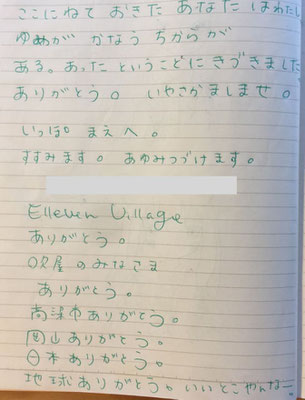 ここにねて おきた あなた はわたし
ゆめが かなう ちからが
ある。あった ということに きづきました
ありがとう。 いやさかましませ。
いっぽ。 まえへ。
すすみます。 あゆみつづけます。
Elleven Village
ありがとう。
吹屋のみなさま
ありがとう。
高梁市ありがとう。
岡山ありがとう。
日本ありがとう。
地球ありがとう。いいとこやんなー。